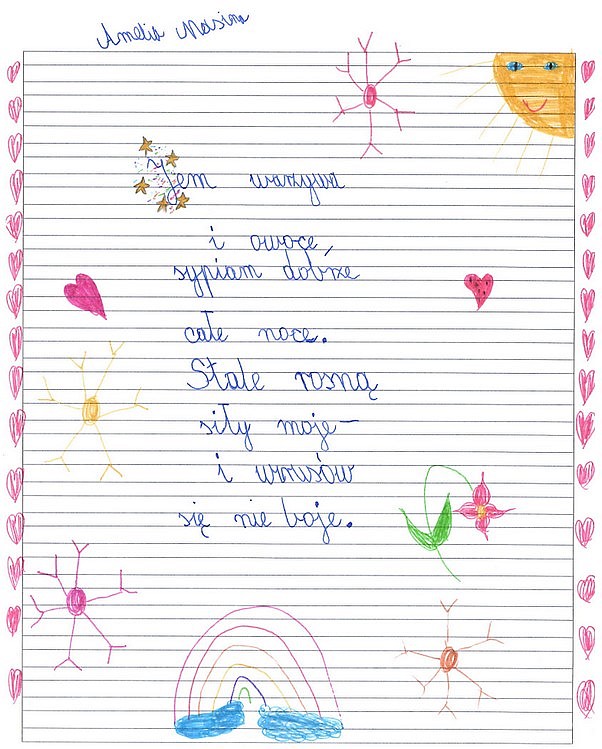 Amelia
Jem warzywa
i owoce,
sypiam dobrze
całe noce.
Stale rosną
siły moje –
i wirusów
się nie boje.